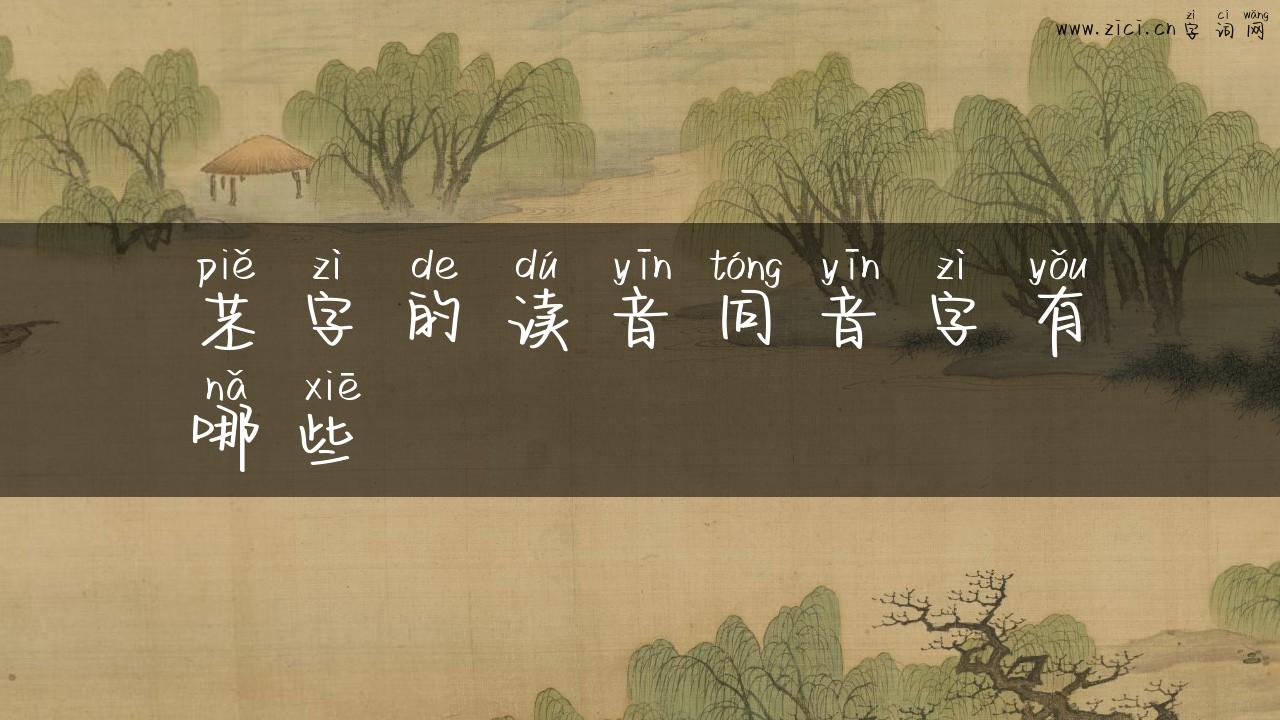 zì cí wǎng
www.zici.cn 字词网
piě zì de dú yīn tóng yīn zì yǒu
苤字的读音同音字有
nǎ xiē
哪些